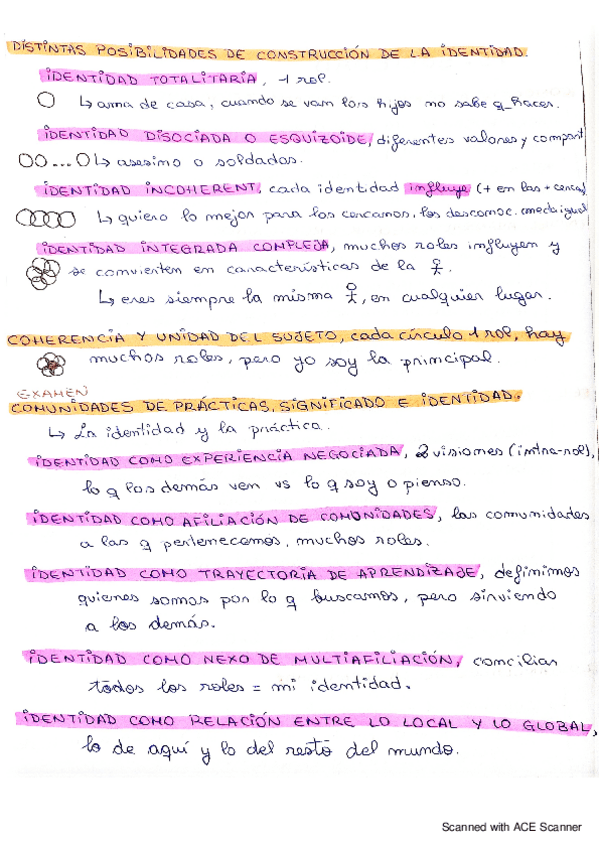 DISTINTAS POSIBILIDADES DE CONSTRUCCIÓN DE LA IDENTIDAD.
IDENTIDAD TOTALITARIA, 1 rol.
↳ ama de casa, cuando se van los hijos no sabe q hacer.
IDENTIDAD DISOCIADA O ESQUIZOIDE, diferentes valores y comport
... ↳ asesino o soldados.
IDENTIDAD INCOHERENT, cada identidad influye (+ en las + cerca)
↳ quiero lo mejor para los cercanos, los desconoc. igual
IDENTIDAD INTEGRADA COMPLEJA, muchos roles influyen y
se convierten en características de la
↳ eres siempre la misma , en cualquier lugar.
COHERENCIA Y UNIDAD DEL SUJETO, cada círculo 1 rol, hay
muchos roles, pero yo soy la principal.
EXAMEN
COMUNIDADES DE PRÁCTICAS, SIGNIFICADO E IDENTIDAD.
↳ La identidad y la práctica.
IDENTIDAD COMO EXPERIENCIA NEGOCIADA, 2 visiones (intra-rol),
lo q los demás ven vs lo q soy o pienso.
IDENTIDAD COMO AFILIACIÓN DE COMUNIDADES, las comunidades
a las q pertenecemos, muchos roles.
IDENTIDAD COMO TRAYECTORIA DE APRENDIZAJE, definimos
quienes somos por lo q buscamos, pero sirviendo
a los demás.
IDENTIDAD COMO NEXO DE MULTIAFILIACIÓN, conciliar
todos los roles = mi identidad.
IDENTIDAD COMO RELACIÓN ENTRE LO LOCAL Y LO GLOBAL,
lo de aquí y lo del resto del mundo.
Scanned with ACE Scanner